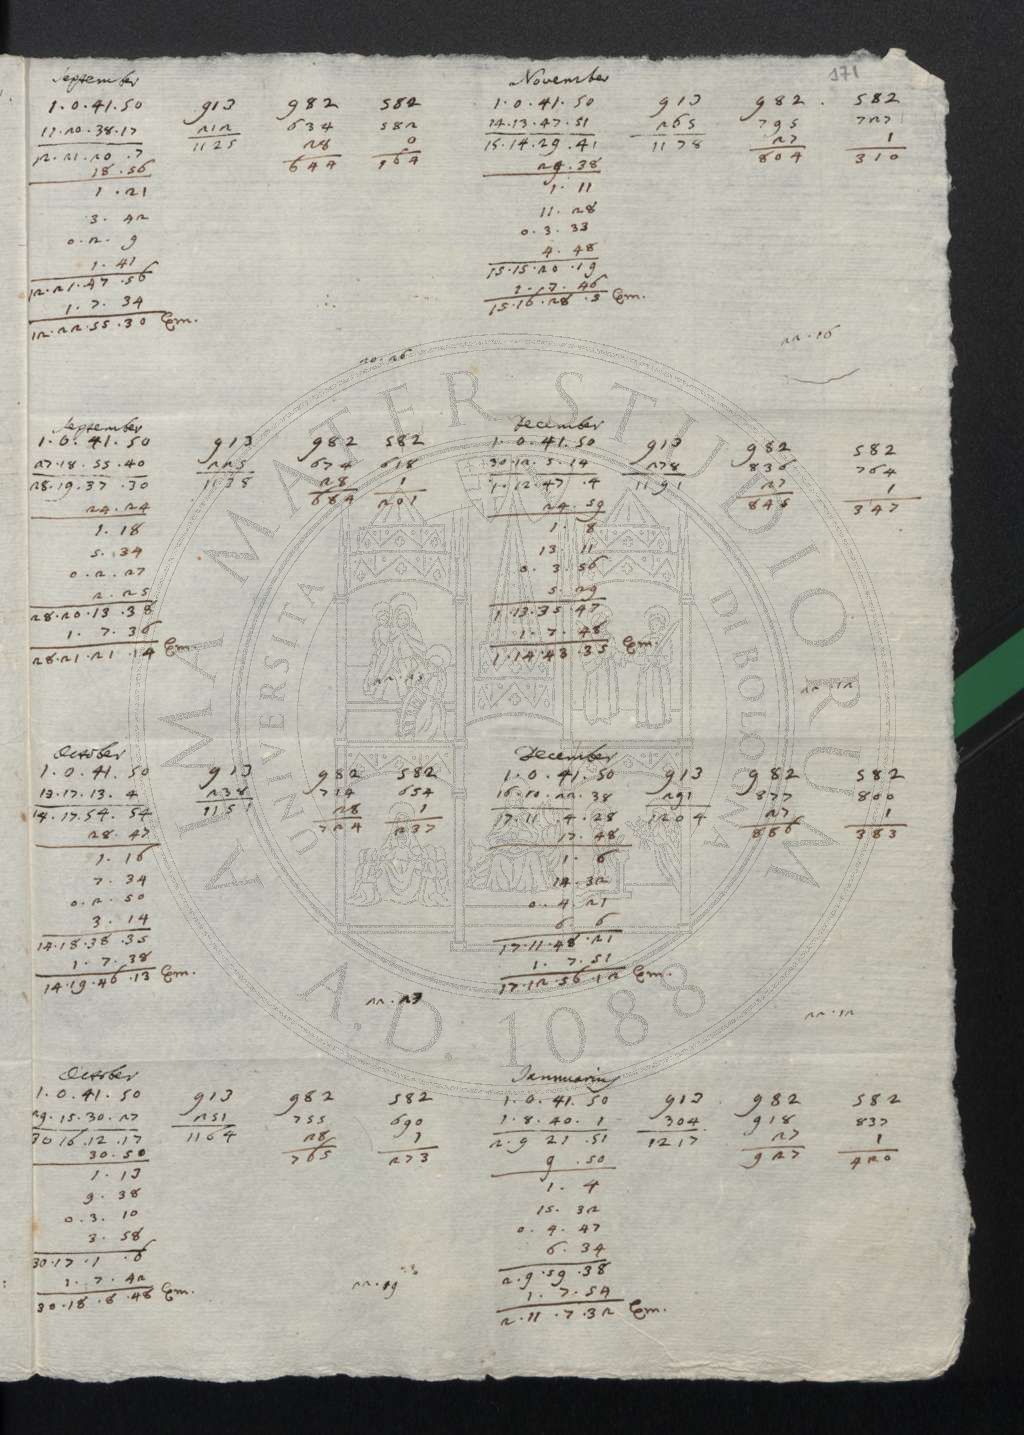 171
September
1.0.41.50 913 982 582
11.20.38.17 212 634 582
12.21.20.7 1125 28 0
18.56 644 164
1.21
3.42
0.2.9
1.41
12.21.47.56
1.7.34
12.22.55.30 Em.
20.26
November
1.0.41.50 913 982 582
14.13.47.51 265 795 727
15.14.29.41 1178 27 1
24.38 804 310
1.11
11.28
0.3.33
4.48
15.15.20.19
1.7.46
15.16.28.5 Em.
22.16
September
1.0.41.50 913 982 582
27.18.55.40 225 674 618
28.19.37.30 1138 28 1
24.24 684 201
1.18
5.34
0.2.27
2.25
28.20.13.38
1.7.36
28.21.21.14 Em.
22.25
December
1.0.41.50 913 982 582
30.12.5.14 278 836 764
1.12.47.4 1191 27 1
24.59 845 347
1.8
13.11
0.3.56
5.29
1.13.35.47
1.7.48
1.14.43.35 Em.
22.12
October
1.0.41.50 913 982 582
13.17.13.4 238 714 654
14.17.54.54 1151 28 1
28.47 724 237
1.16
7.34
0.2.50
3.14
14.18.38.35
1.7.38
14.19.46.13 Em.
22.23
December
1.0.41.50 913 982 582
16.10.22.38 291 877 800
17.11.4.28 1204 27 1
17.48 886 383
1.6
14.32
0.4.21
6.6
17.11.48.21
1.7.51
17.12.56.12 Em.
22.12
October
1.0.41.50 913 982 582
29.15.30.27 251 755 690
30.16.12.17 1164 28 1
30.50 765 273
1.13
9.38
0.3.10
3.58
30.17.1.6
1.7.42
30.18.8.48 Em.
22.19
Jannuarius
1.0.41.50 913 982 582
1.8.40.1 304 918 837
2.9.21.51 1217 27 1
9.50 927 420
1.4
15.32
0.4.47
6.34
2.9.59.38
1.7.54
2.11.7.32 Em.
ALMA MATER STUDIORUM
UNIVERSITÀ DI BOLOGNA
A.D. 1088